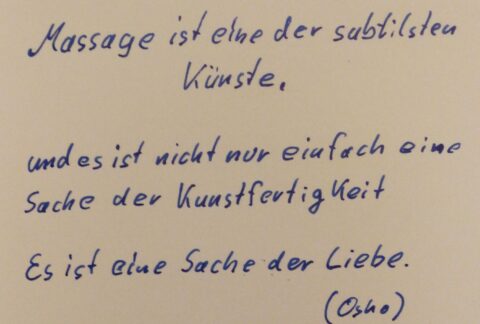 Massage ist eine der subtilsten
Künste.
und es ist nicht nur einfach eine
Sache der Kunstfertigkeit
Es ist eine Sache der Liebe.
(Osho)